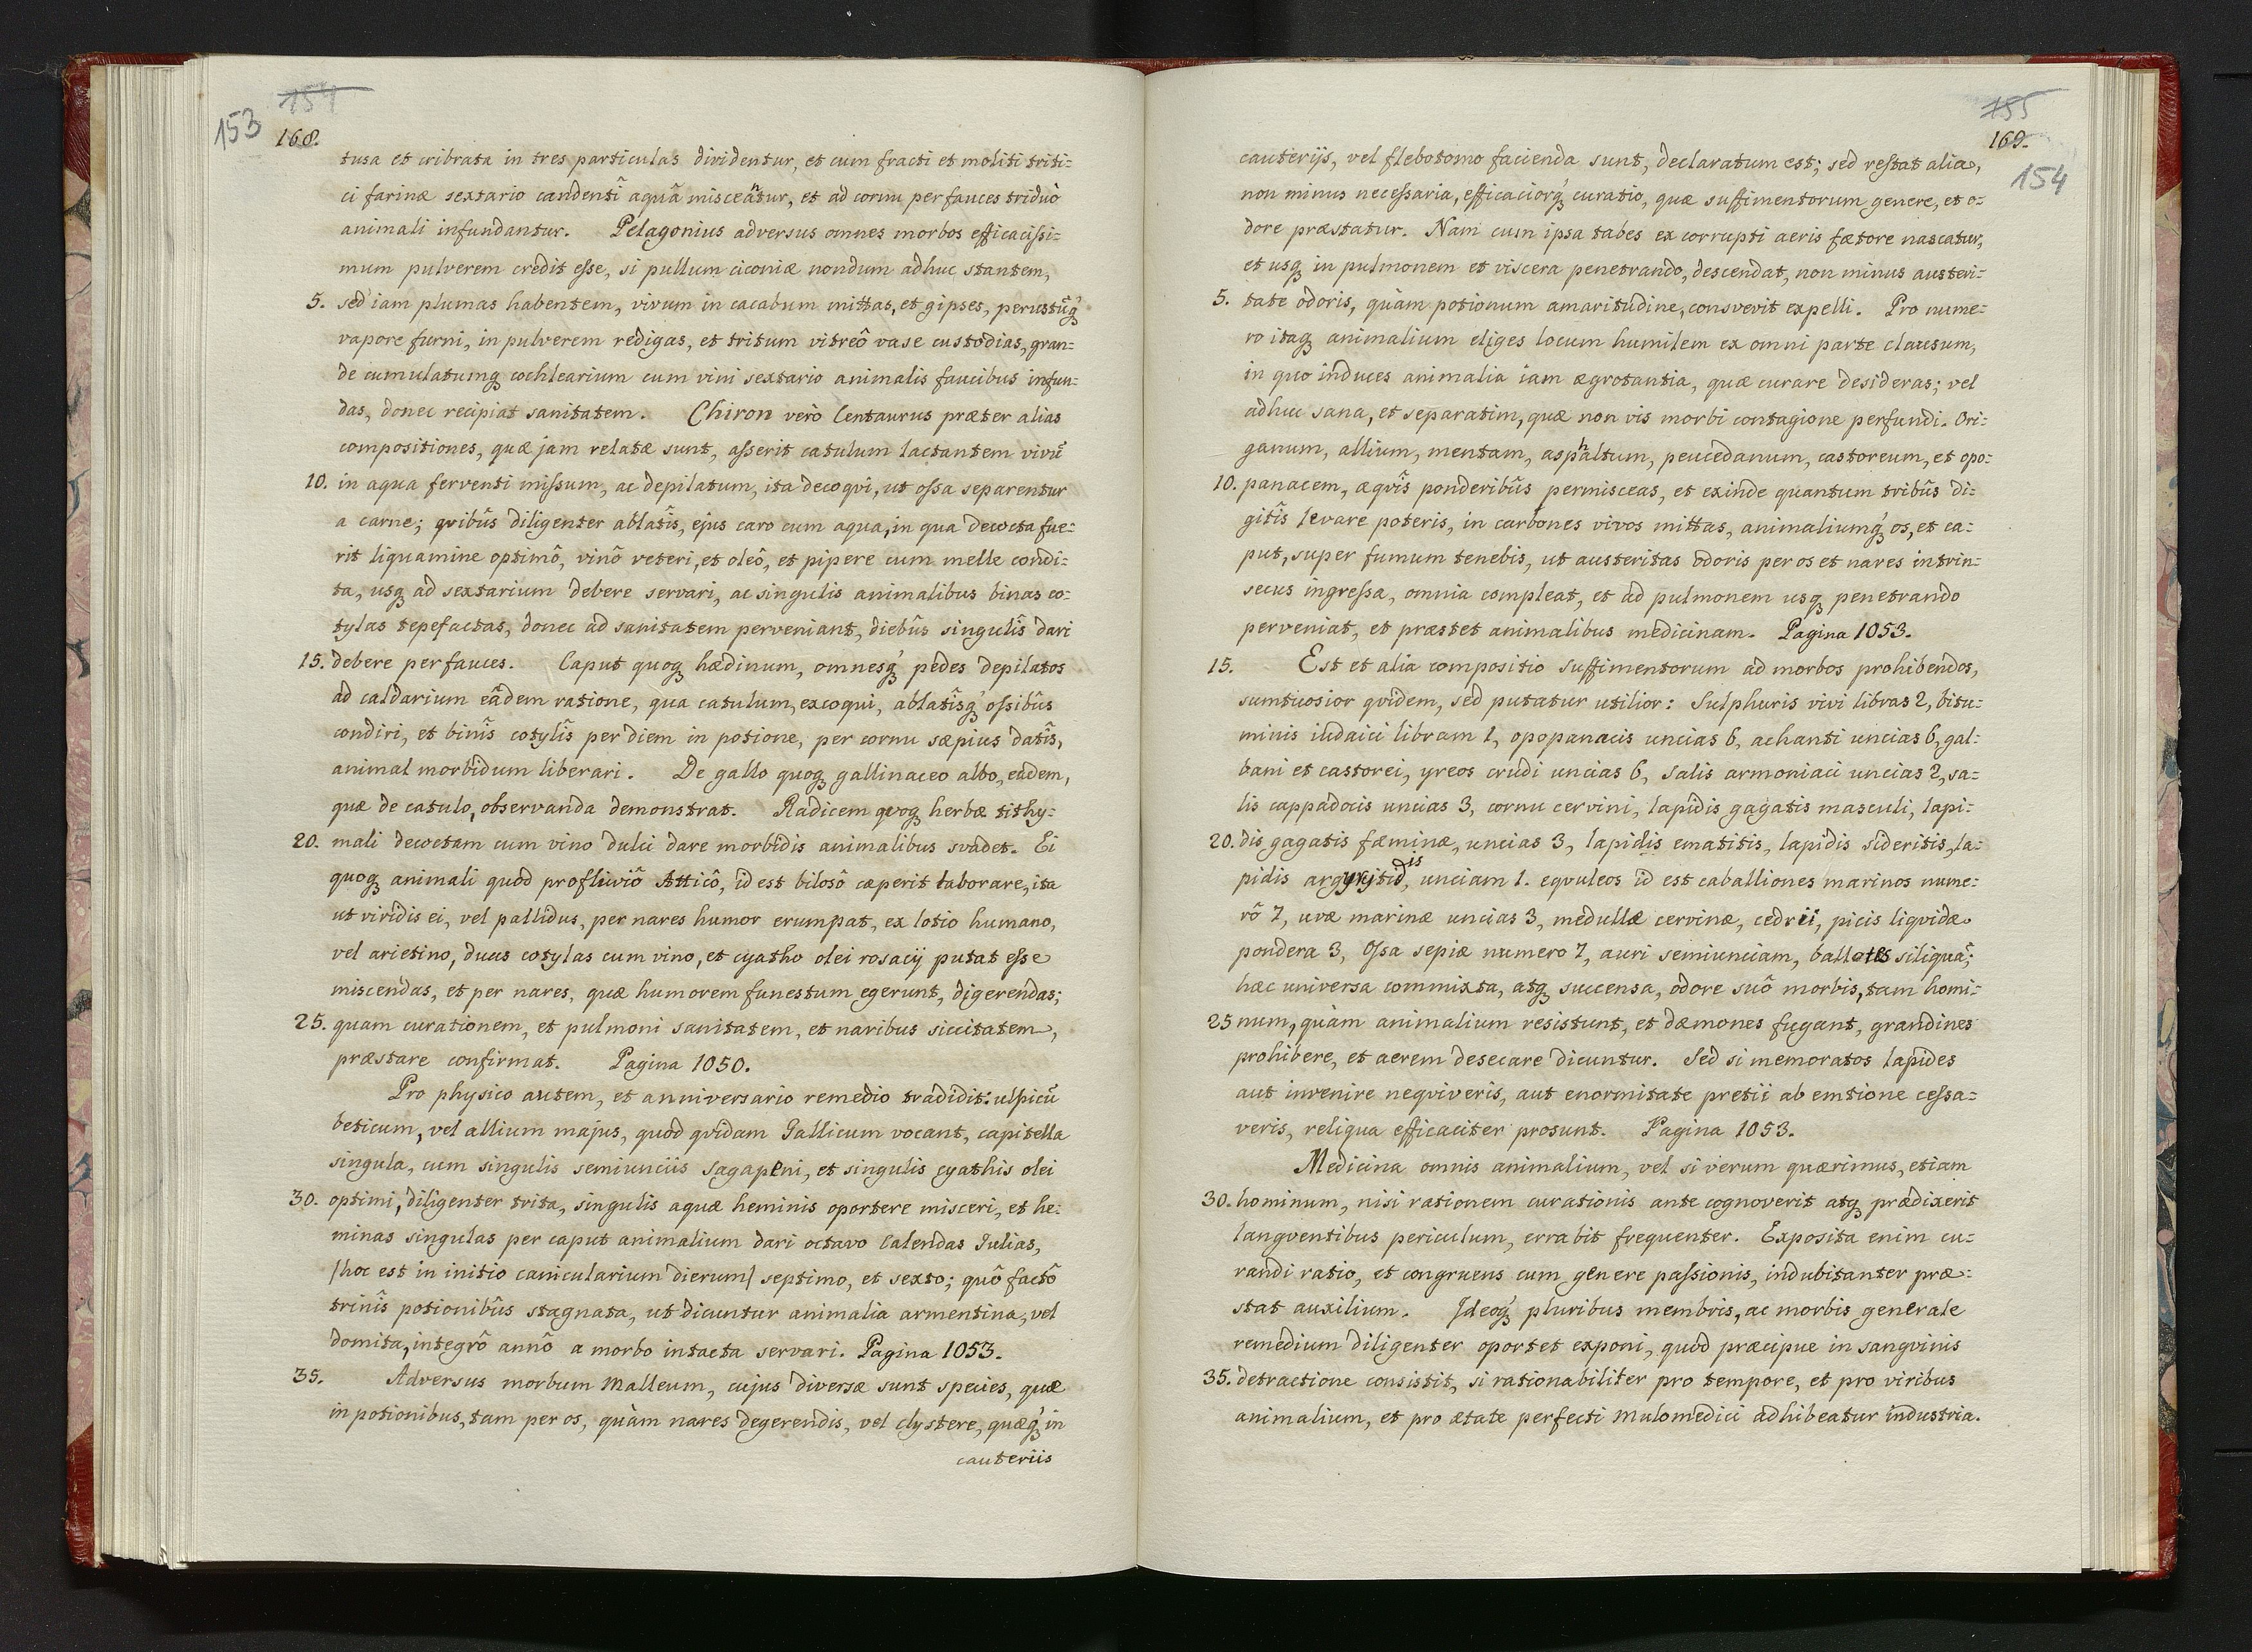 154
153
168.
tusa et cribrata in tres particulas dividentur, et cum fracti et moliti triti-
ci farinæ sextario candentî aquâ misceâtur, et ad cornu per fauces triduò
animali infundantur. Pelagonius adversus omnes morbos efficacissi-
mum pulverem credit esse, si pullum ciconiæ nondum adhuc stantem,
5. sed iam plumas habentem, vivum in cacabum mittas, et gipses, perustũq́
vapore furni, in pulverem redigas, et tritum vitreô vase custodias, gran-
de cumulatumq́ cochlearium cum vini sextario animalis faucibus infun-
das, donec recipiat sanitatem. Chiron verò Centaurus præter alias
compositiones, quæ jam relatæ sunt, asserit catulum lactantem vivũ
10. in aqua ferventi missum, ac depilatum, ita decoqvi, ut ossa separentur
a carne; qvibûs diligenter ablatîs, ejus caro cum aqua, in qua decocta fue-
rit liquamine optimô, vinô veteri, et oleô, et pipere cum melle condi-
ta, usq́ ad sextarium debere servari, ac singulis animalibus binas co-
tylas tepefactas, donec ad sanitatem perveniant, diebûs singulîs dari
15. debere per fauces. Caput quoq́ hædinum, omnesq́ pedes depilatos
ad caldarium eâdem ratione, qua catulum, excoqui, ablatîsq́ ossibûs
condiri, et binîs cotylîs per diem in potione, per cornu sæpius datîs,
animal morbidum liberari. De gallo quoq́ gallinaceo albo, eâdem,
quæ de catulo, observanda demonstrat. Radicem qvoq́ herbæ tithy-
20. mali decoctam cum vino dulci dare morbidis animalibus svadet. Ei
quoq́ animali quod profluviô Atticô, id est bilosô cæperit laborare, ita
ut viridis ei, vel pallidus, per nares humor erumpat, ex lotio humano,
vel arietino, duas cotylas cum vino, et cyatho olei rosacij putat esse
miscendas, et per nares, quæ humorem funestum egerunt, digerendas;
25. quam curationem, et pulmoni sanitatem, et naribus siccitatem,
præstare confirmat. Pagina 1050.
Pro physico autem, et anniversario remedio tradidit: ulpicũ
beticum, vel allium majus, quod qvidam Gallicum vocant, capitella
singula, cum singulis semiunciis sagapeni, et singulis cyathis olei
30. optimi, diligenter trita, singulis aquæ heminis oportere misceri, et he-
minas singulas per caput animalium dari octavo Calendas Iulias,
/hoc est in initio canicularium dierum/ septimo, et sexto; quô factô
trinîs potionibûs stagnata, ut dicuntur animalia armentina, vel
domita, integrô annô a morbo intacta servari. Pagina 1053.
35. Adversus morbum Malleum, cujus diversæ sunt species, quæ
in potionibus, tam per os, quàm nares degerendis, vel clystere, quæq́ in
cauteriis
155
169.
154
cauterijs, vel flebotomo facienda sunt, declaratum est; sed restat alia,
non minus necessaria, efficaciorq́ curatio, quæ suffimentorum genere, et o-
dore præstatur. Nam cum ipsa tabes ex corrupti aeris fætore nascatur,
et usq́ in pulmonem et viscera penetrando, descendat, non minus austeri-
5. tate odoris, quàm potionum amaritudine, consvevit expelli. Pro nume-
ro itaq́ animalium eliges locum humilem ex omni parte clausum,
in quo induces animalia iam ægrotantia, quæ curare desideras; vel
adhuc sana, et separatim, quæ non vis morbi contagione perfundi. Ori-
ganum, allium, mentam, asphaltum, peucedanum, castoreum, et opo-
10. panacem, æqvîs ponderibûs permisceas, et exinde quantum tribûs di-
gitîs levare poteris, in carbones vivos mittas, animaliumq́ os, et ca-
put, super fumum tenebis, ut austeritas odoris per os et nares intrin-
secus ingressa, omnia compleat, et ad pulmonem usq́ penetrando
perveniat, et præstet animalibus medicinam. Pagina 1053.
15. Est et alia compositio suffimentorum ad morbos prohibendos,
sumtuosior qvidem, sed putatur utilior: Sulphuris vivi libras 2, bitu-
minis iudaici libram 1, opopanacis uncias 6, achanti uncias 6, gal-
bani et castorei, yreos crudi uncias 6, salis armoniaci uncias 2, sa-
lis cappadocis uncias 3, cornu cervini, lapidis gagatis masculi, lapi-
20. dis gagatis fæminæ, uncias 3, lapidis ematitis, lapidis sideritis, la-
pidis argyritidis, unciam 1. eqvuleos id est caballiones marinos nume-
rô 7, uvæ marinæ uncias 3, medullæ cervinæ, cedrii, picis liqvidæ
pondera 3, Ossa sepiæ numero 7, auri semiunciam, ballotes siliquã;
hæc universa commixta, atq́ succensa, odore suô morbis, tam homi-
25 num, quàm animalium resistunt, et dæmones fugant, grandines
prohibere, et aerem desecare dicuntur. Sed si memoratos lapides
aut invenire neqviveris, aut enormitate pretii ab emtione cessa-
veris, reliqua efficaciter prosunt. Pagina 1053.
Medicina omnis animalium, vel si verum quærimus, etiam
30. hominum, nisi rationem curationis ante cognoverit atq́ prædixerit
langventibus periculum, errabit frequenter. Exposita enim cu-
randi ratio, et congruens cum genere passionis, indubitanter præ-
stat auxilium. Ideoq́ pluribus membris, ac morbis generale
remedium diligenter oportet exponi, quod præcipue in sangvinis
35. detractione consistit, si rationabiliter pro tempore, et pro viribus
animalium, et pro ætate perfecti mulomedici adhibeatur industria.